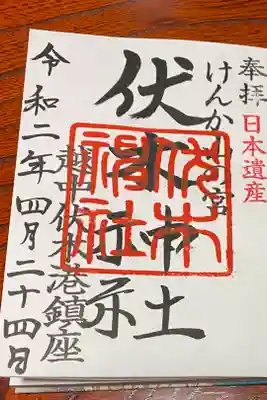 奉拝
日本遺産
けんか山宮
伏木神社
伏木
神社
越中伏木港鎮座
令和二年四月二十四日